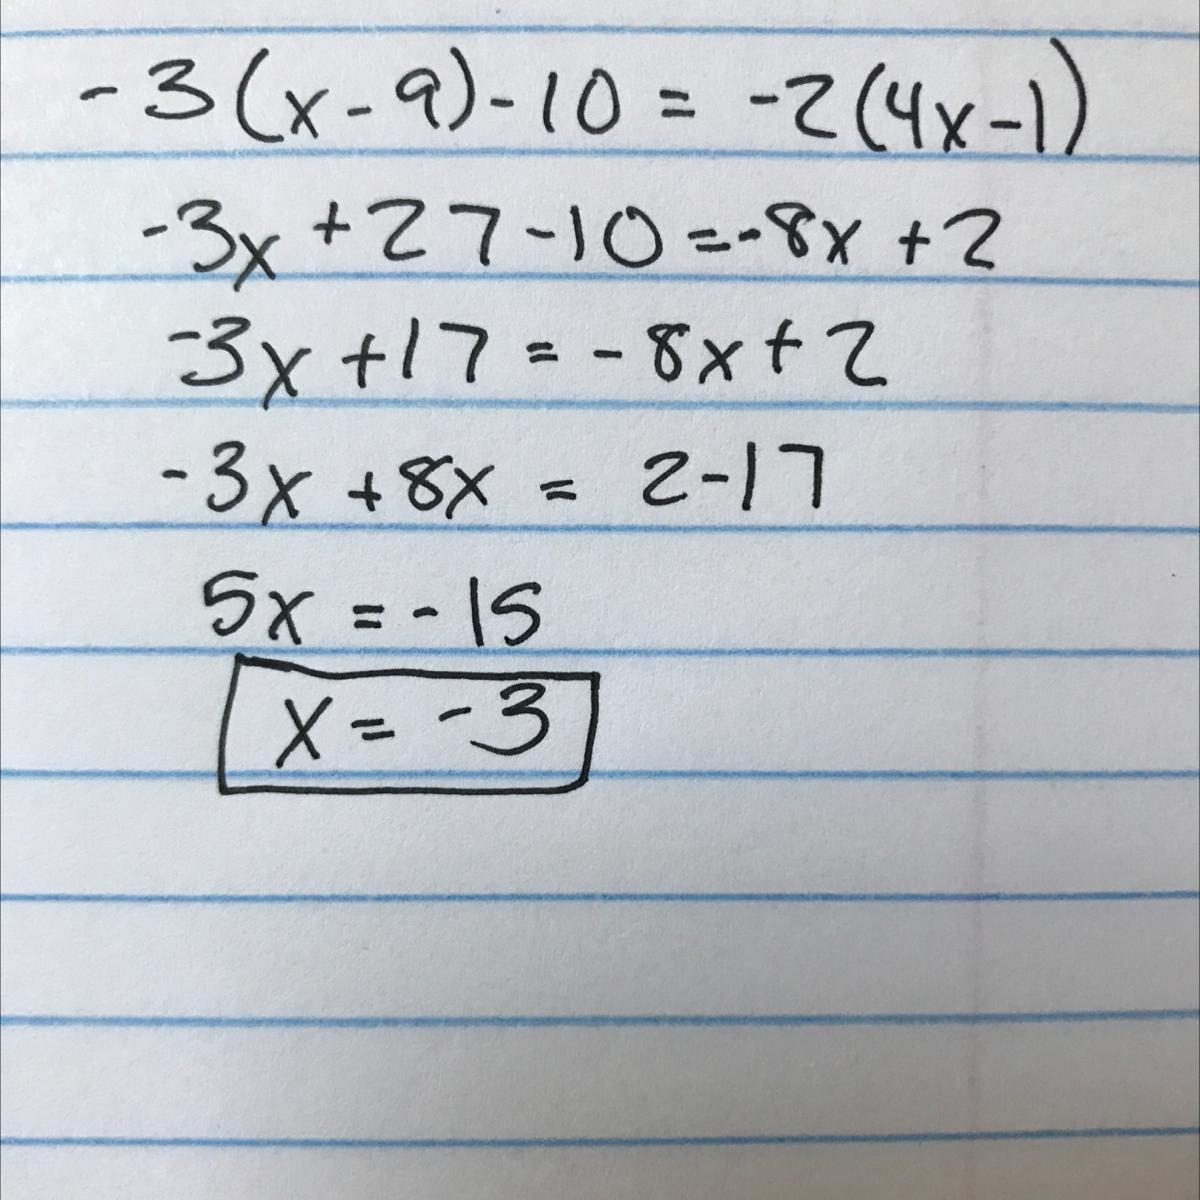 -3(x-9)-10 = -2(4x-1)
-3x +27-10=-8x +2
-3x +17 = -8x+2
-3x +8x = 2-17
5x = -15
x = -3